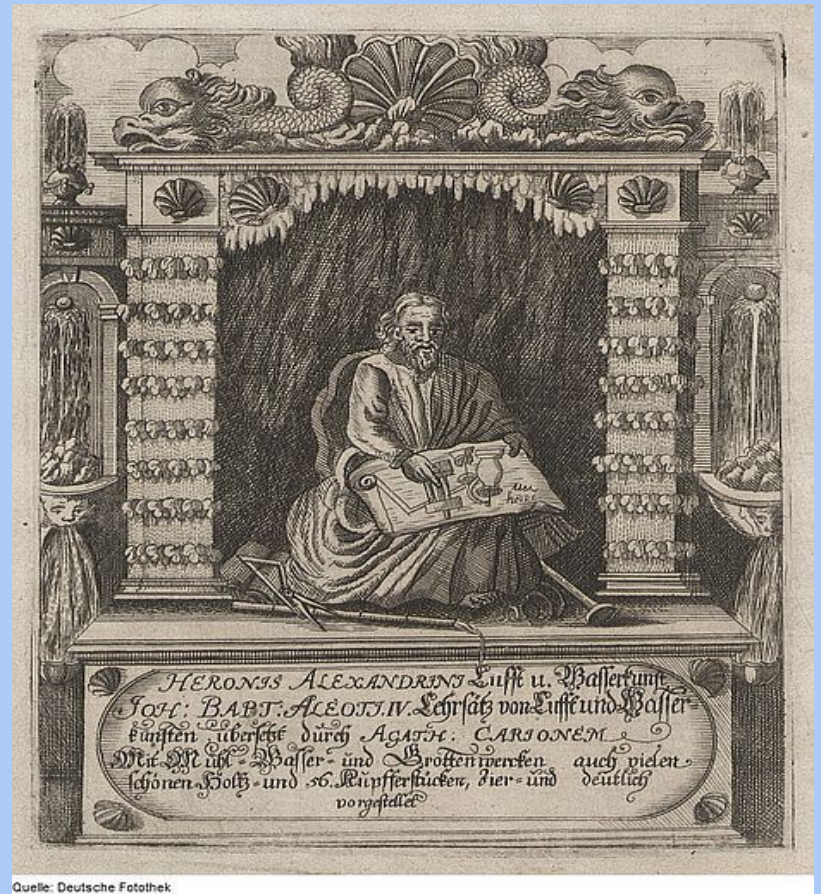 HERONIS ALEXANDRINI Lufft u. Wasserkunst
JOH: BABT: ALEOTI. IV. Lehrsätz von Lufft und Wasser-
künsten übersetzt durch AGATH: CARIONEM
Mit Mühl-Wasser- und Grottenwercken auch vielen
schönen Holtz- und 56. Kupfferstücken, Zier- und deutlich
vorgestellet
Quelle: Deutsche Fotothek